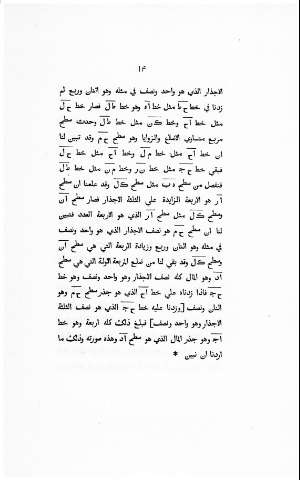 ١٤
الاجذار الذي هو واحد ونصف في مثله وهو اثنان وربع ثم
زدنا في خط حط مثل خط آه وهو خط طل فصار خط حل
مثل خط آح وخط كن مثل خط طل وحدث سطح
مربع متساوي الاضلاع والزوايا وهو سطح حم وقد تبين لنا
ان خط آح مثل خط مل وخط آح مثل خط حل
فبقي خط حج مثل خط نر وخط من مثل خط طل
فنفصل من سطح مثل سطح كل وقد علمنا ان سطح
آر هو الاربعة الزايدة علي الثلثة الاجذار فصار سطح آن
وسطح كل مثل سطح آر الذي هو الاربعة العدد فتبين
لنا ان سطح حم هو نصف الاجذار الذي هو واحد ونصف
في مثله وهو اثنان وربع وزيادة الاربعة التي هي سطح آن
وسطح كل وقد بقي لنا من ضلع المربعة الاولة التي هي سطح
آد وهو المال كله نصف الاجذار وهو واحد ونصف وهو خط
حج فاذا زدناه علي خط آح الذي هو جذر سطح حم وهو
اثنان ونصف [وزدنا عليه خط حج الذي هو نصف الثلثة
الاجذار وهو واحد ونصف] فبلغ ذلك كله اربعة وهو خط
آج وهو جذر المال الذي هو سطح آد وهذه صورته وذلك ما
اردنا ان نبين *